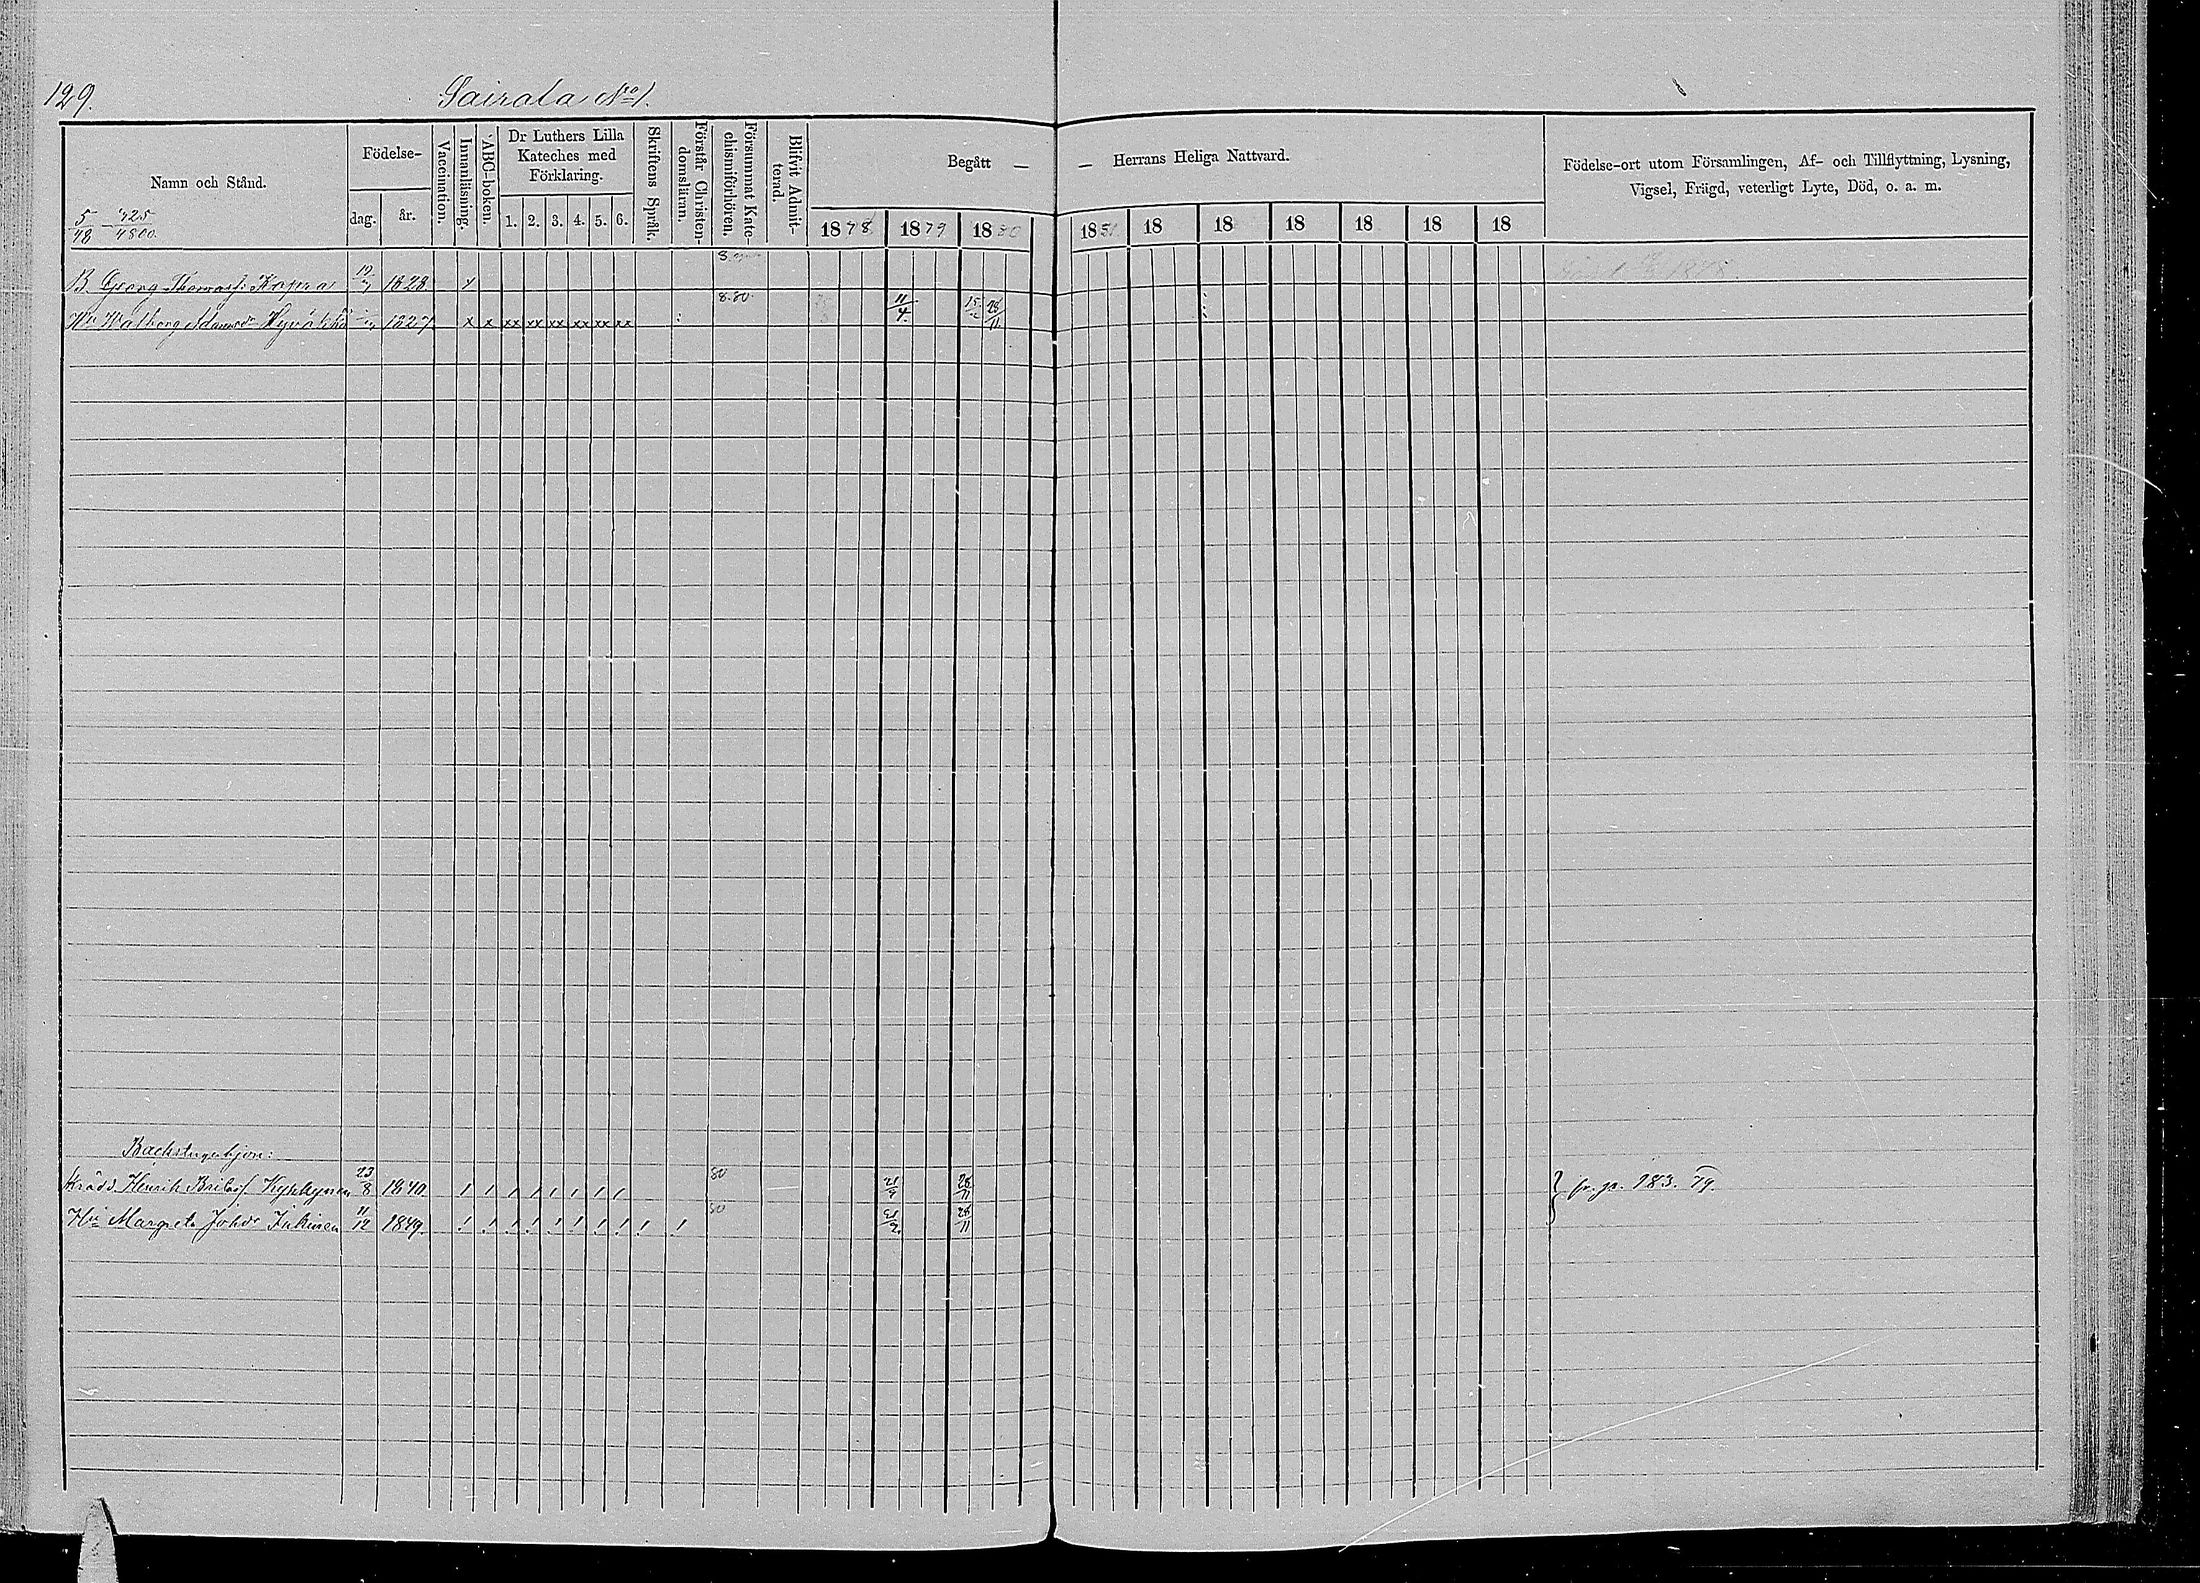 129.
Sairala No 1.
Namn och Stånd.
Födelse-
dag.
år.
Vaccination.
Innanläsning.
ABC-boken.
Dr Luthers Lilla
Kateches med
Förklaring.
1. 2. 3. 4. 5. 6.
Skriftens Språk.
Förstår Christen-
domsläran.
Försummat Kate-
chismiförhören.
Blifvit Admit-
terad.
Begått — — Herrans Heliga Nattvard.
1878 1879 1880 1881 18 18 18 18 18 18
Födelse-ort utom Församlingen, Af- och Tillflyttning, Lysning,
Vigsel, Frägd, veterligt Lyte, Död, o. a. m.
5/48
B. Georg Thomass: Kopra 1828 x
Hu Walborg Adamsdr 1827 x x xx xx xx xx xx xx 8.80. 11/4
Backstuguhjon:
Henrik 23/8 1840 80 28/11 fr. p. 183. 79.
Hu Margreta Johdr Inkinen 11/12 1849. 80 28/11